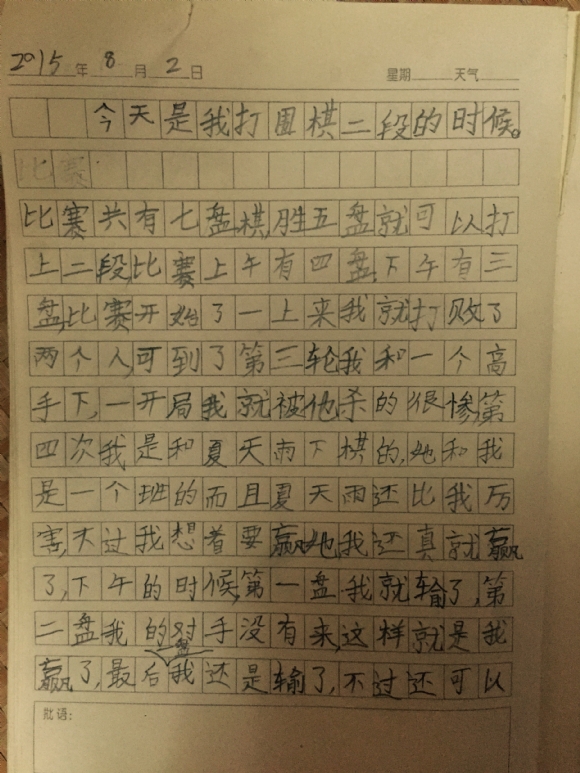 2015年8月2日 星期 天气
今天是我打围棋二段的时候。
比赛
比赛共有七盘棋,胜五盘就可以打
上二段,比赛上午有四盘,下午有三
盘,比赛开始了一上来我就打败了
两个人,可到了第三轮我和一个高
手下,一开局我就被他杀的很惨,第
四次我是和夏天雨下棋的,她和我
是一个班的而且夏天雨还比我厉
害,不过我想着要赢她,我还真就赢
了,下午的时候,第一盘我就输了,第
二盘我的对手没有来,这样就是我
赢了,最后盘我还是输了,不过还可以
批语: